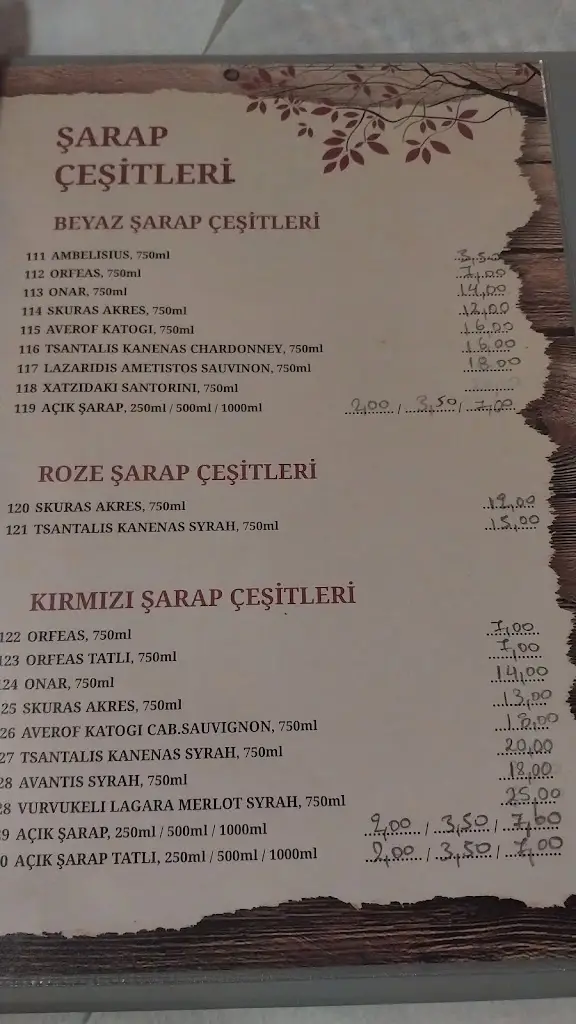 ŞARAP
ÇEŞİTLERİ
BEYAZ ŞARAP ÇEŞİTLERİ
111 AMBELISIUS, 750ml 3,50
112 ORFEAS, 750ml 7,00
113 ONAR, 750ml 14,00
114 SKURAS AKRES, 750ml 12,00
115 AVEROF KATOGI, 750ml 16,00
116 TSANTALIS KANENAS CHARDONNEY, 750ml 16,00
117 LAZARIDIS AMETISTOS SAUVINON, 750ml 18,00
118 XATZIDAKI SANTORINI, 750ml ............
119 AÇIK ŞARAP, 250ml / 500ml / 1000ml 2,00 / 3,50 / 7,00
ROZE ŞARAP ÇEŞİTLERİ
120 SKURAS AKRES, 750ml 12,00
121 TSANTALIS KANENAS SYRAH, 750ml 15,00
KIRMIZI ŞARAP ÇEŞİTLERİ
122 ORFEAS, 750ml 7,00
123 ORFEAS TATLI, 750ml 7,00
124 ONAR, 750ml 14,00
25 SKURAS AKRES, 750ml 13,00
26 AVEROF KATOGI CAB.SAUVIGNON, 750ml 18,00
27 TSANTALIS KANENAS SYRAH, 750ml 20,00
28 AVANTIS SYRAH, 750ml 18,00
28 VURVUKELI LAGARA MERLOT SYRAH, 750ml 25,00
9 AÇIK ŞARAP, 250ml / 500ml / 1000ml 2,00 / 3,50 / 7,00
0 AÇIK ŞARAP TATLI, 250ml / 500ml / 1000ml 2,00 / 3,50 / 7,00